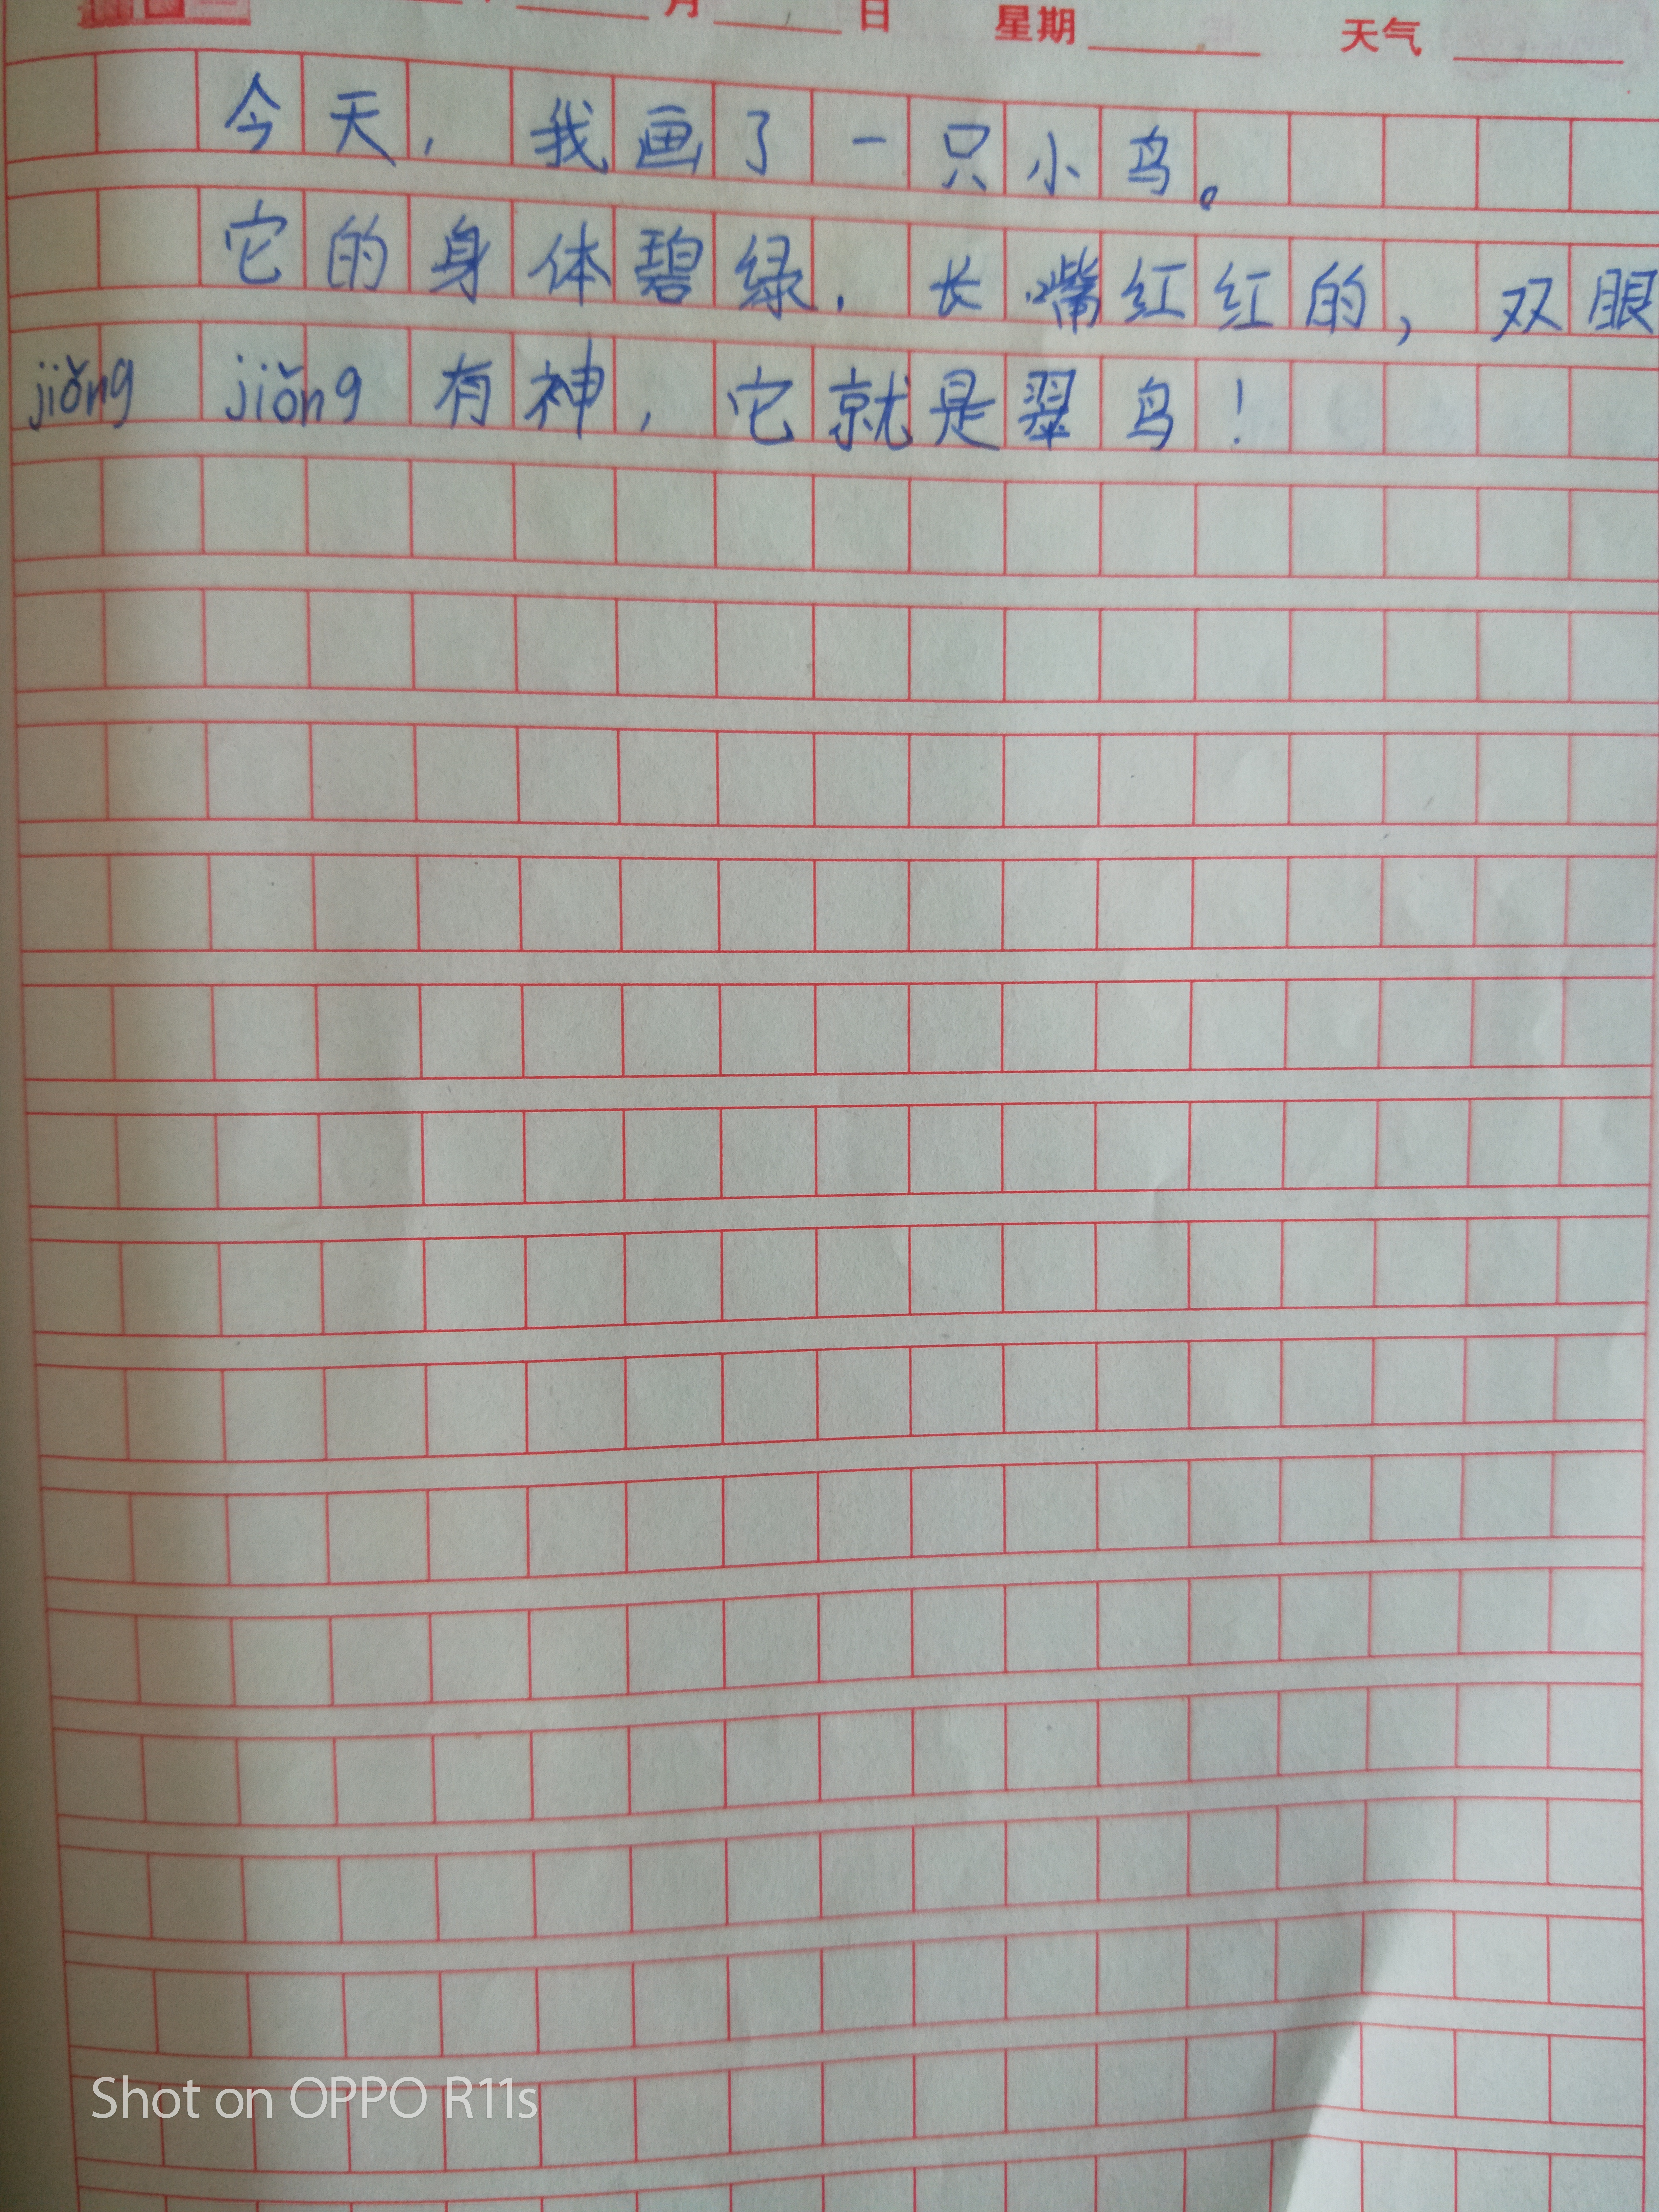 月 日 星期 天气
今天，我画了一只小鸟。
它的身体碧绿，长嘴红红的，双眼
jiǒng jiǒng 有神，它就是翠鸟！
Shot on OPPO R11s